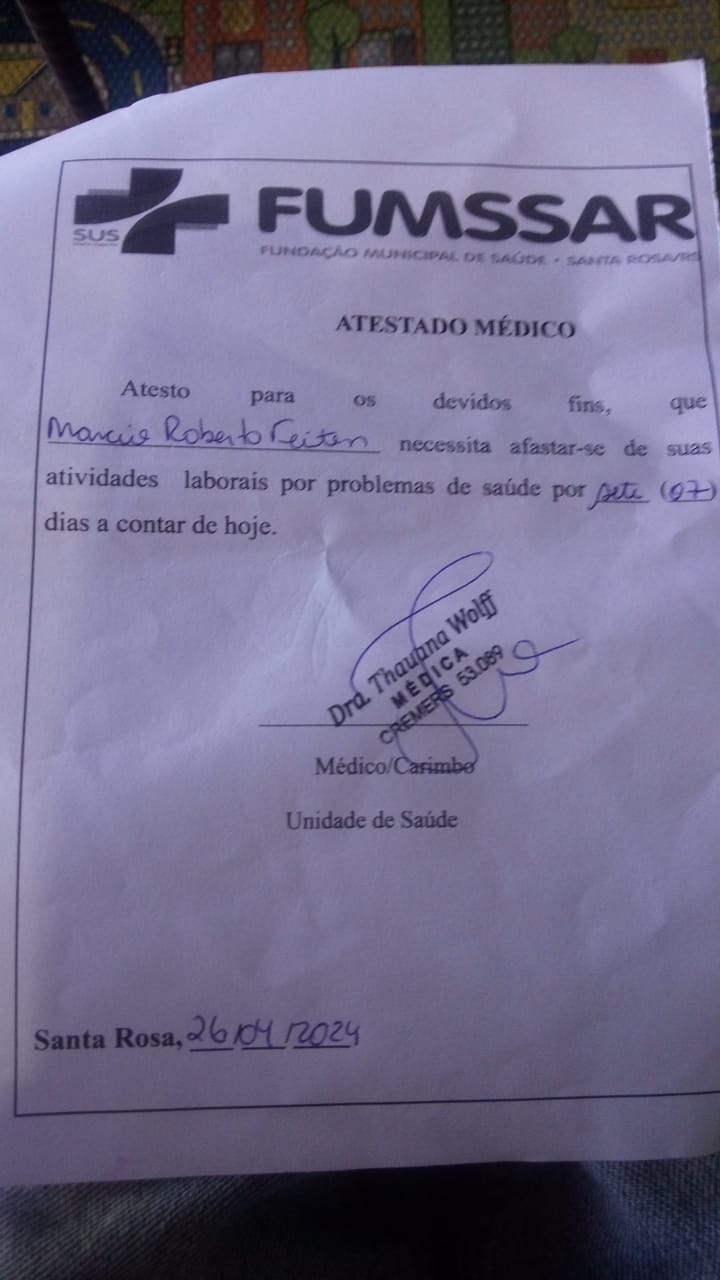 SUS
FUMSSAR
FUNDAÇÃO MUNICIPAL DE SAÚDE - SANTA ROSA/RS
ATESTADO MÉDICO
Atesto para os devidos fins, que
Marcio Roberto Feiten necessita afastar-se de suas
atividades laborais por problemas de saúde por sete (07)
dias a contar de hoje.
Dra. Thauana Wolff
MÉDICA
CREMERS 53.089
Médico/Carimbo
Unidade de Saúde
Santa Rosa, 26/04/2024